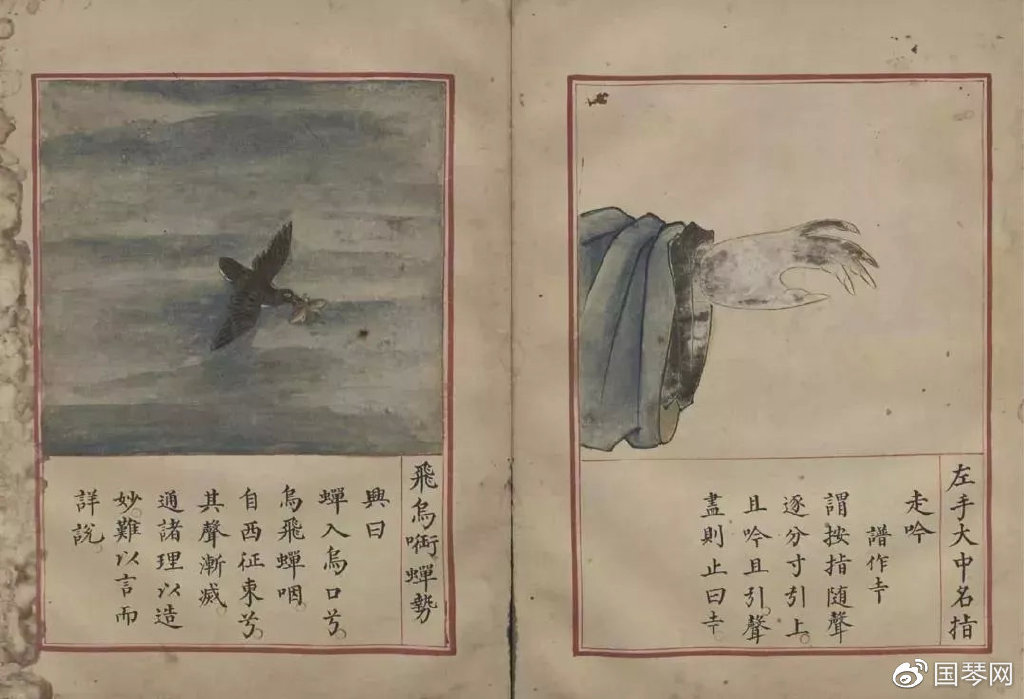 左手大中名指
走吟
譜作
謂按指随聲
逐分寸引上。
且吟且引聲
盡則止曰
飛烏啣蟬勢
興曰
蟬入烏口兮。
烏飛蟬咽。
自西征東兮。
其聲漸减。
通諸理以造
妙難以言而
詳說。
国琴网